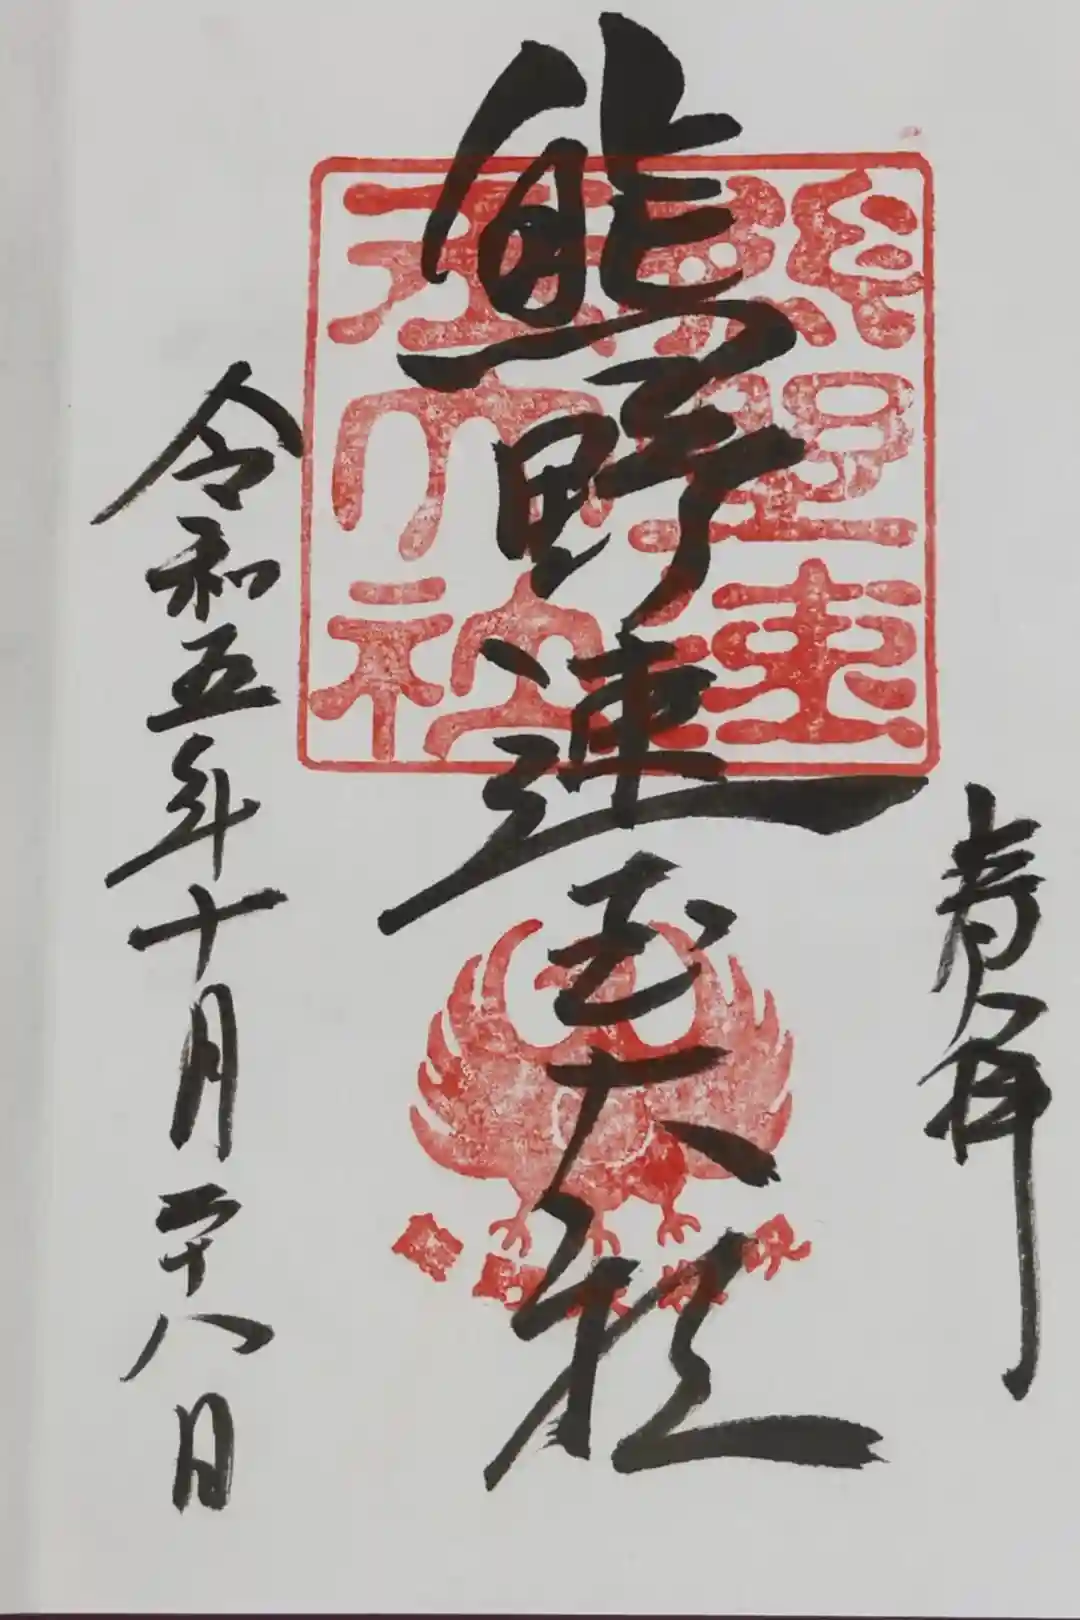 奉拝
熊野速玉大社
熊野速玉大社
令和五年十月二十八日